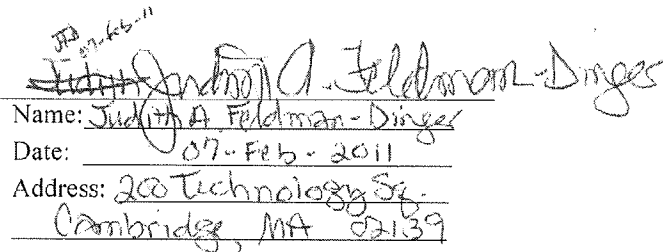 JAD
07-Feb-11
Judith Judith A. Feldman-Dinger
Name: Judith A Feldman-Dinger
Date: 07-Feb-2011
Address: 200 Technology Sq.
Cambridge, MA 02139